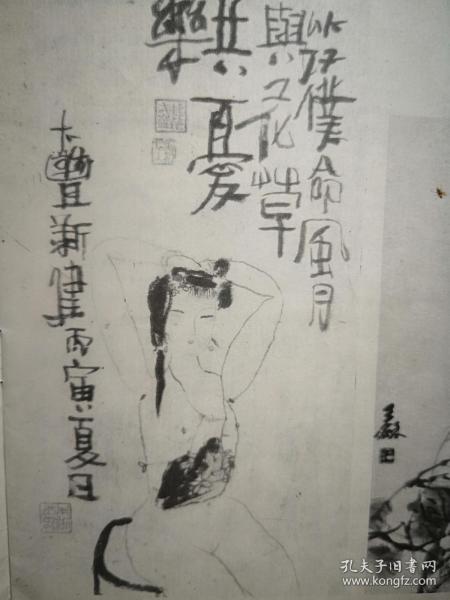 以奴僕命風月
與花草
共憂
樂
大豐新建丙寅夏日
孔夫子旧书网
www.kongfz.com